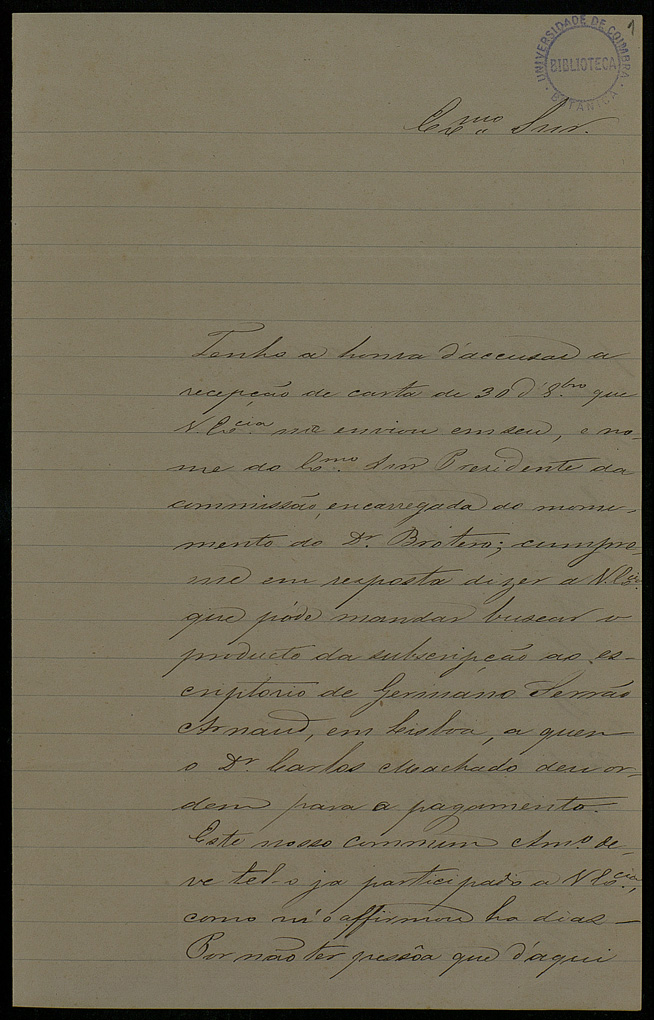 UNIVERSIDADE DE COIMBRA
BIBLIOTECA
BOTANICA
1
Exmo Snr.
Tenho a honra d'accusar a
recepção de carta de 30 d'8.bro que
V. Excia me enviou em seu, e no-
me do Exmo. Snr Presidente da
commissão, encarregada do monu-
mento do Dr. Brotero; cumpre-
me em resposta dizer a V. Excia
que póde mandar buscar o
producto da subscripção ao es-
criptorio de Germano Serrão
Arnaud, em Lisboa, a quem
o Dr. Carlos Machado deu or-
dem para o pagamento.
Este nosso commum Amo. de-
ve tel-o ja participado a V. Excia,
como m'o affirmou ha dias —
Por não ter pessôa que d'aqui